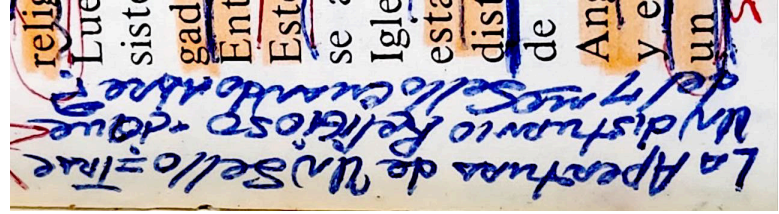 relig
Lue
siste
gad
Ent
Est
se a
Igle
esta
dist
de
Ang
y e
un
La Apertura de Un Sello = Trae
Un disturbio Religioso. ¿Que
del 7 Sello cuando abre?